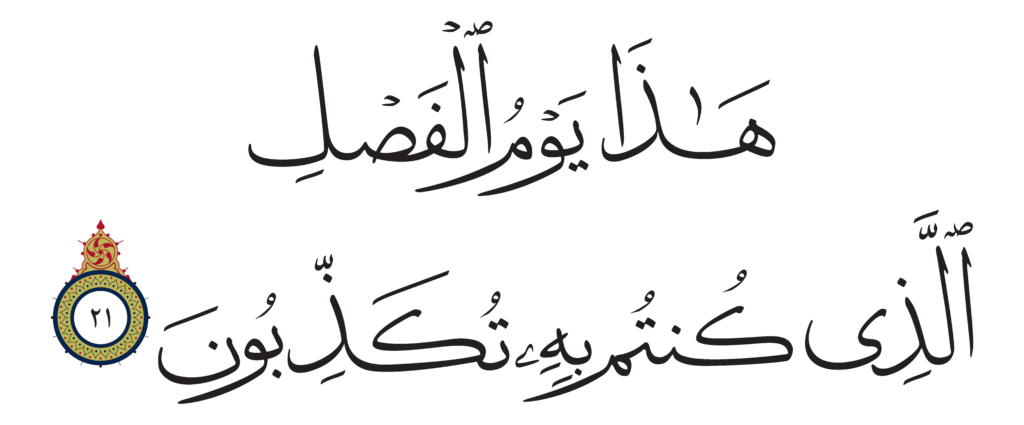 هَـٰذَا يَوۡمُ ٱلۡفَصۡلِ
ٱلَّذِى كُنتُم بِهِۦ تُكَذِّبُونَ ٢١